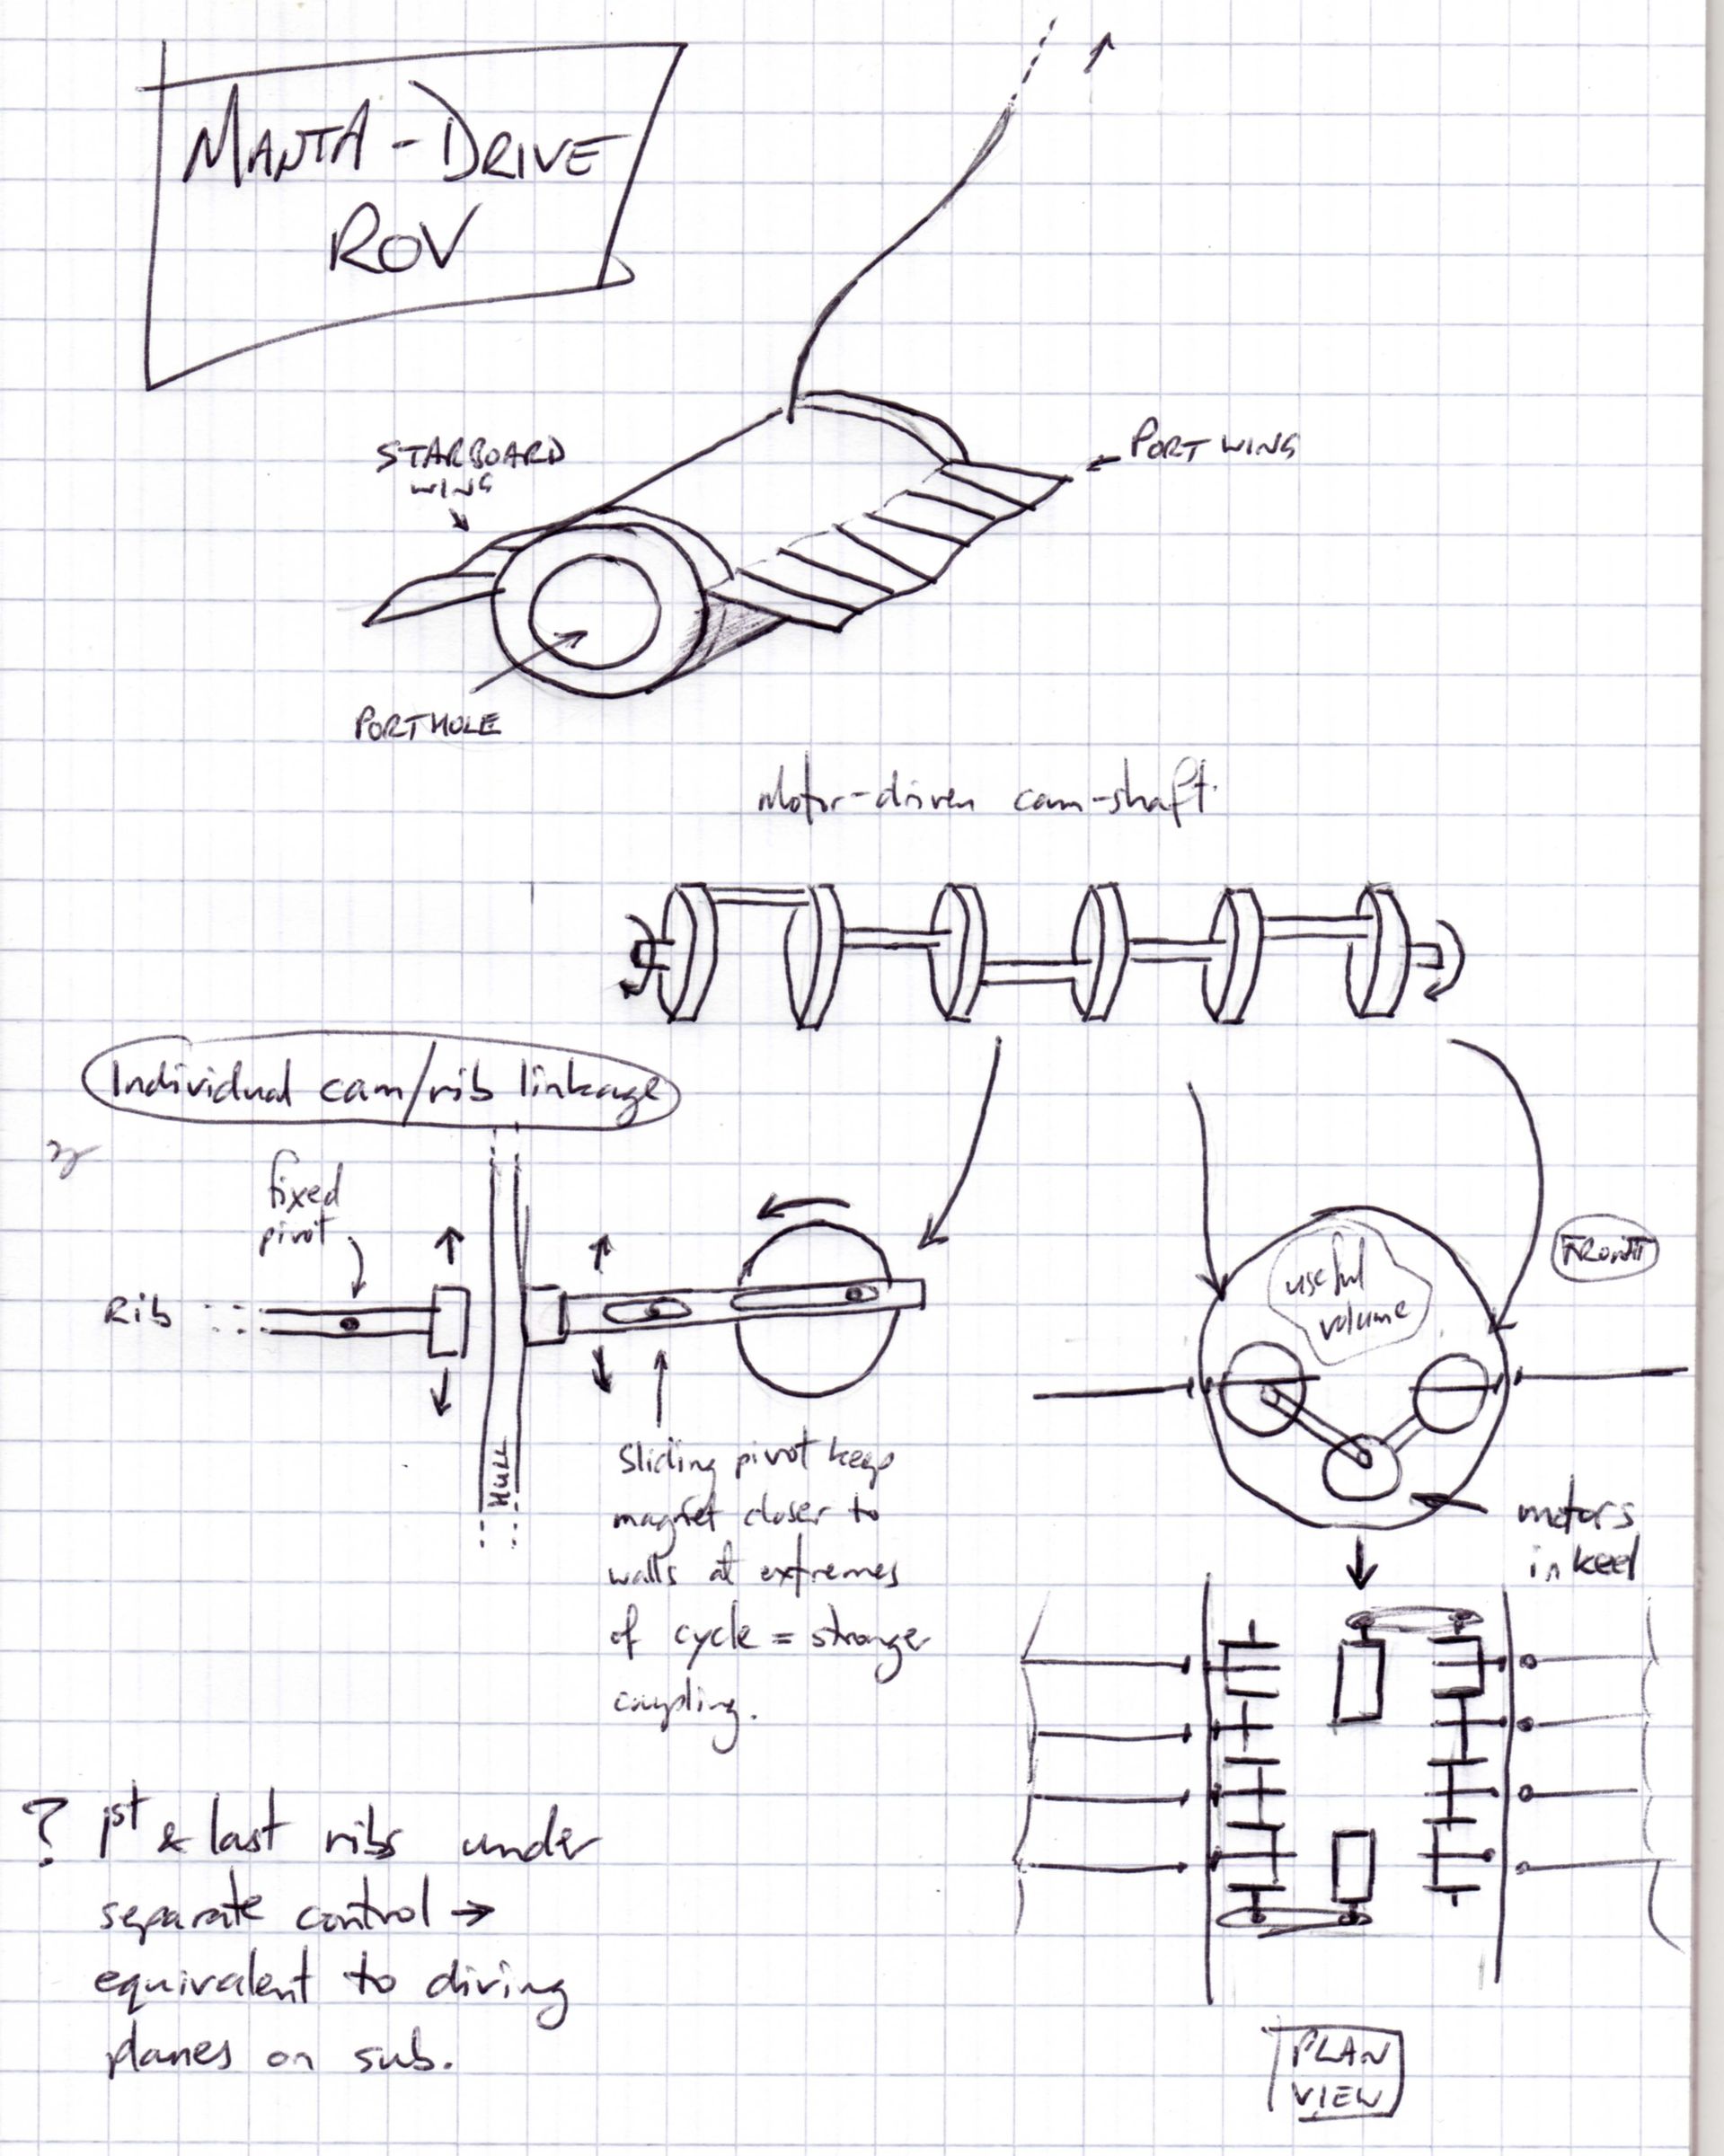 MANTA-DRIVE
ROV
STARBOARD
WING
PORT WING
PORTHOLE
Motor-driven cam-shaft.
Individual cam/rib linkage
fixed
pivot
Rib
HULL
Sliding pivot keeps
magnet closer to
walls at extremes
of cycle = stronger
coupling.
FRONT
useful
volume
motors
in keel
? 1st & last ribs under
separate control →
equivalent to diving
planes on sub.
PLAN
VIEW